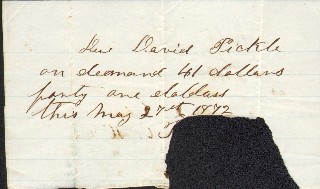 Due David Pickle
on deomand 41 dollars
forty one doldass
this May 27th 1872